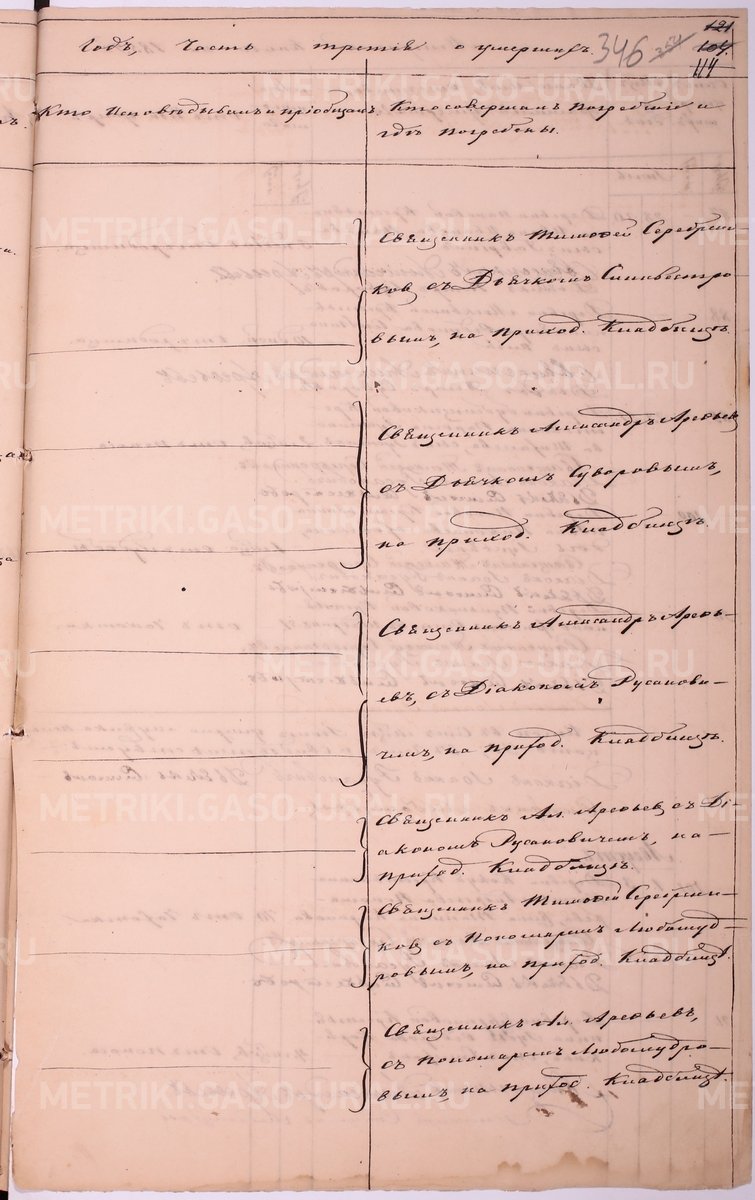 121
Годъ, Часть третія о умершихъ. 346 104.
114
Кто Исповѣдывалъ и пріобщалъ. Кто совершалъ погребеніе и
гдѣ погребены.
Священникъ Тимофей Серебрени-
ковъ, съ Дьячкомъ Сильвестро-
вымъ, на приход. Кладбищѣ.
Священникъ Александръ Арефьевъ
съ Дьячкомъ Суворовымъ,
на приход. Кладбищѣ.
Священникъ Александръ Арефь-
евъ, съ Діакономъ Русанови-
чемъ, на приход. Кладбищѣ.
Священникъ Ал. Арефьевъ съ Ді-
акономъ Русановичемъ, на
приход. Кладбищѣ.
Священникъ Тимофей Серебрени-
ковъ съ Пономаремъ Любомуд-
ровымъ, на приход. Кладбищѣ.
Священникъ Ал. Арефьевъ,
съ Пономаремъ Любомудро-
вымъ, на приход. Кладбищѣ.
METRIKI.GASO-URAL.RU